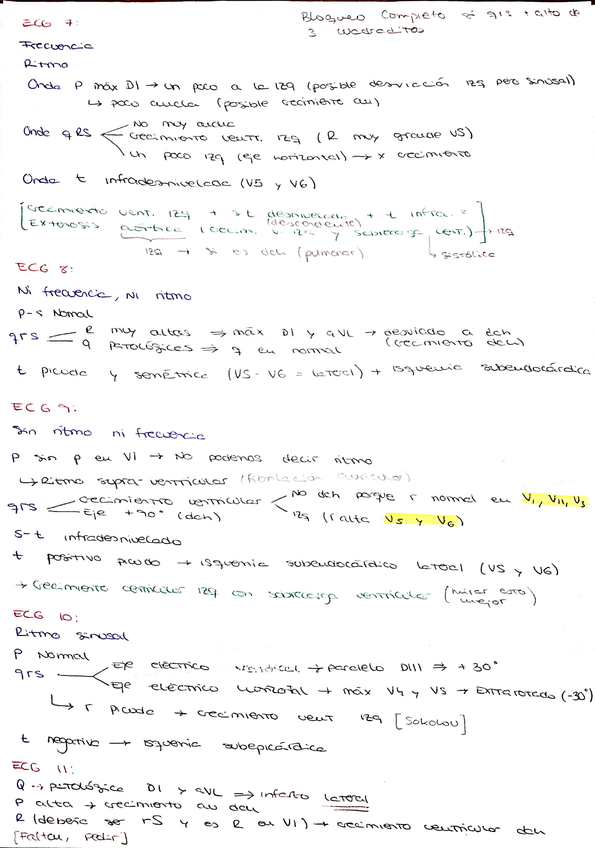 Bloqueo Completo si qrs + alto de
3 cuadraditos
ECG 7:
Frecuencia
Ritmo
Onda P máx DI → un poco a la izq (posible desviación izq pero sinusal)
↳ poco ancha (posible crecimiento au)
No muy ancha
Onda qRS crecimiento ventr. izq (R muy grande V5)
Un poco izq (eje horizontal) → x crecimiento
Onda t infradesnivelada (V5 y V6)
[Crecimiento vent. izq + st desnivelado + t infra. =
(descendente)
Estenosis aórtica (crecim. v. izq y sobrecarga vent.)] → izq
izq → si es dch (pulmonar) ↳ sistólica
ECG 8:
Ni frecuencia, Ni ritmo
P-s Normal
qrs R muy altas ⇒ máx DI y aVL → desviado a dch
Q patológicas ⇒ q en normal (crecimiento dch)
t picuda y simétrica (V5-V6 = lateral) + isquemia subendocárdica
ECG 9:
Sin ritmo ni frecuencia
P sin p en VI → No podemos decir ritmo
↳ Ritmo supra-ventricular (fibrilación auricular)
qrs crecimiento ventricular No dch porque r normal en V1, VII, V3
Eje +90° (dch) izq (r alta V5 y V6)
S-t infradesnivelado
t positivo picudo → isquemia subendocárdico lateral (V5 y V6)
→ Crecimiento ventricular izq con sobrecarga ventricular (mirar esto
mejor)
ECG 10:
Ritmo sinusal
P Normal
qrs Eje eléctrico vertical → paralelo DIII ⇒ +30°
Eje eléctrico horizontal → máx V4 y V5 → Extrarotado (-30°)
↳ r picuda → crecimiento vent izq [Sokolov]
t negativa → isquemia subepicárdica
ECG 11:
Q → patológica DI y aVL ⇒ infarto lateral
P alta → crecimiento au dch
R (debería ser rS y es R en VI) → crecimiento ventricular dch
[Faltan, pedir]